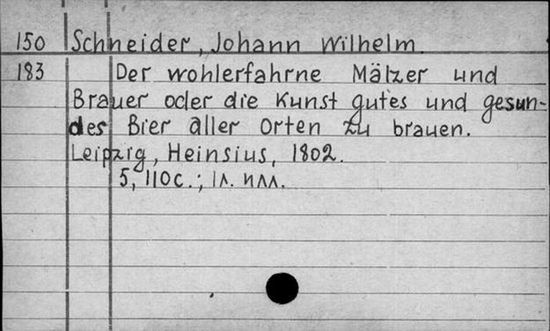 150 Schneider, Johann Wilhelm.
183 Der wohlerfahrne Mälzer und
Brauer oder die Kunst gutes und gesun-
des Bier aller Orten zu brauen.
Leipzig, Heinsius, 1802.
5, 110 с.; 1л. илл.